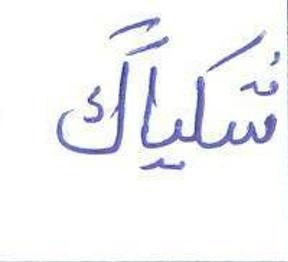 شكياكً